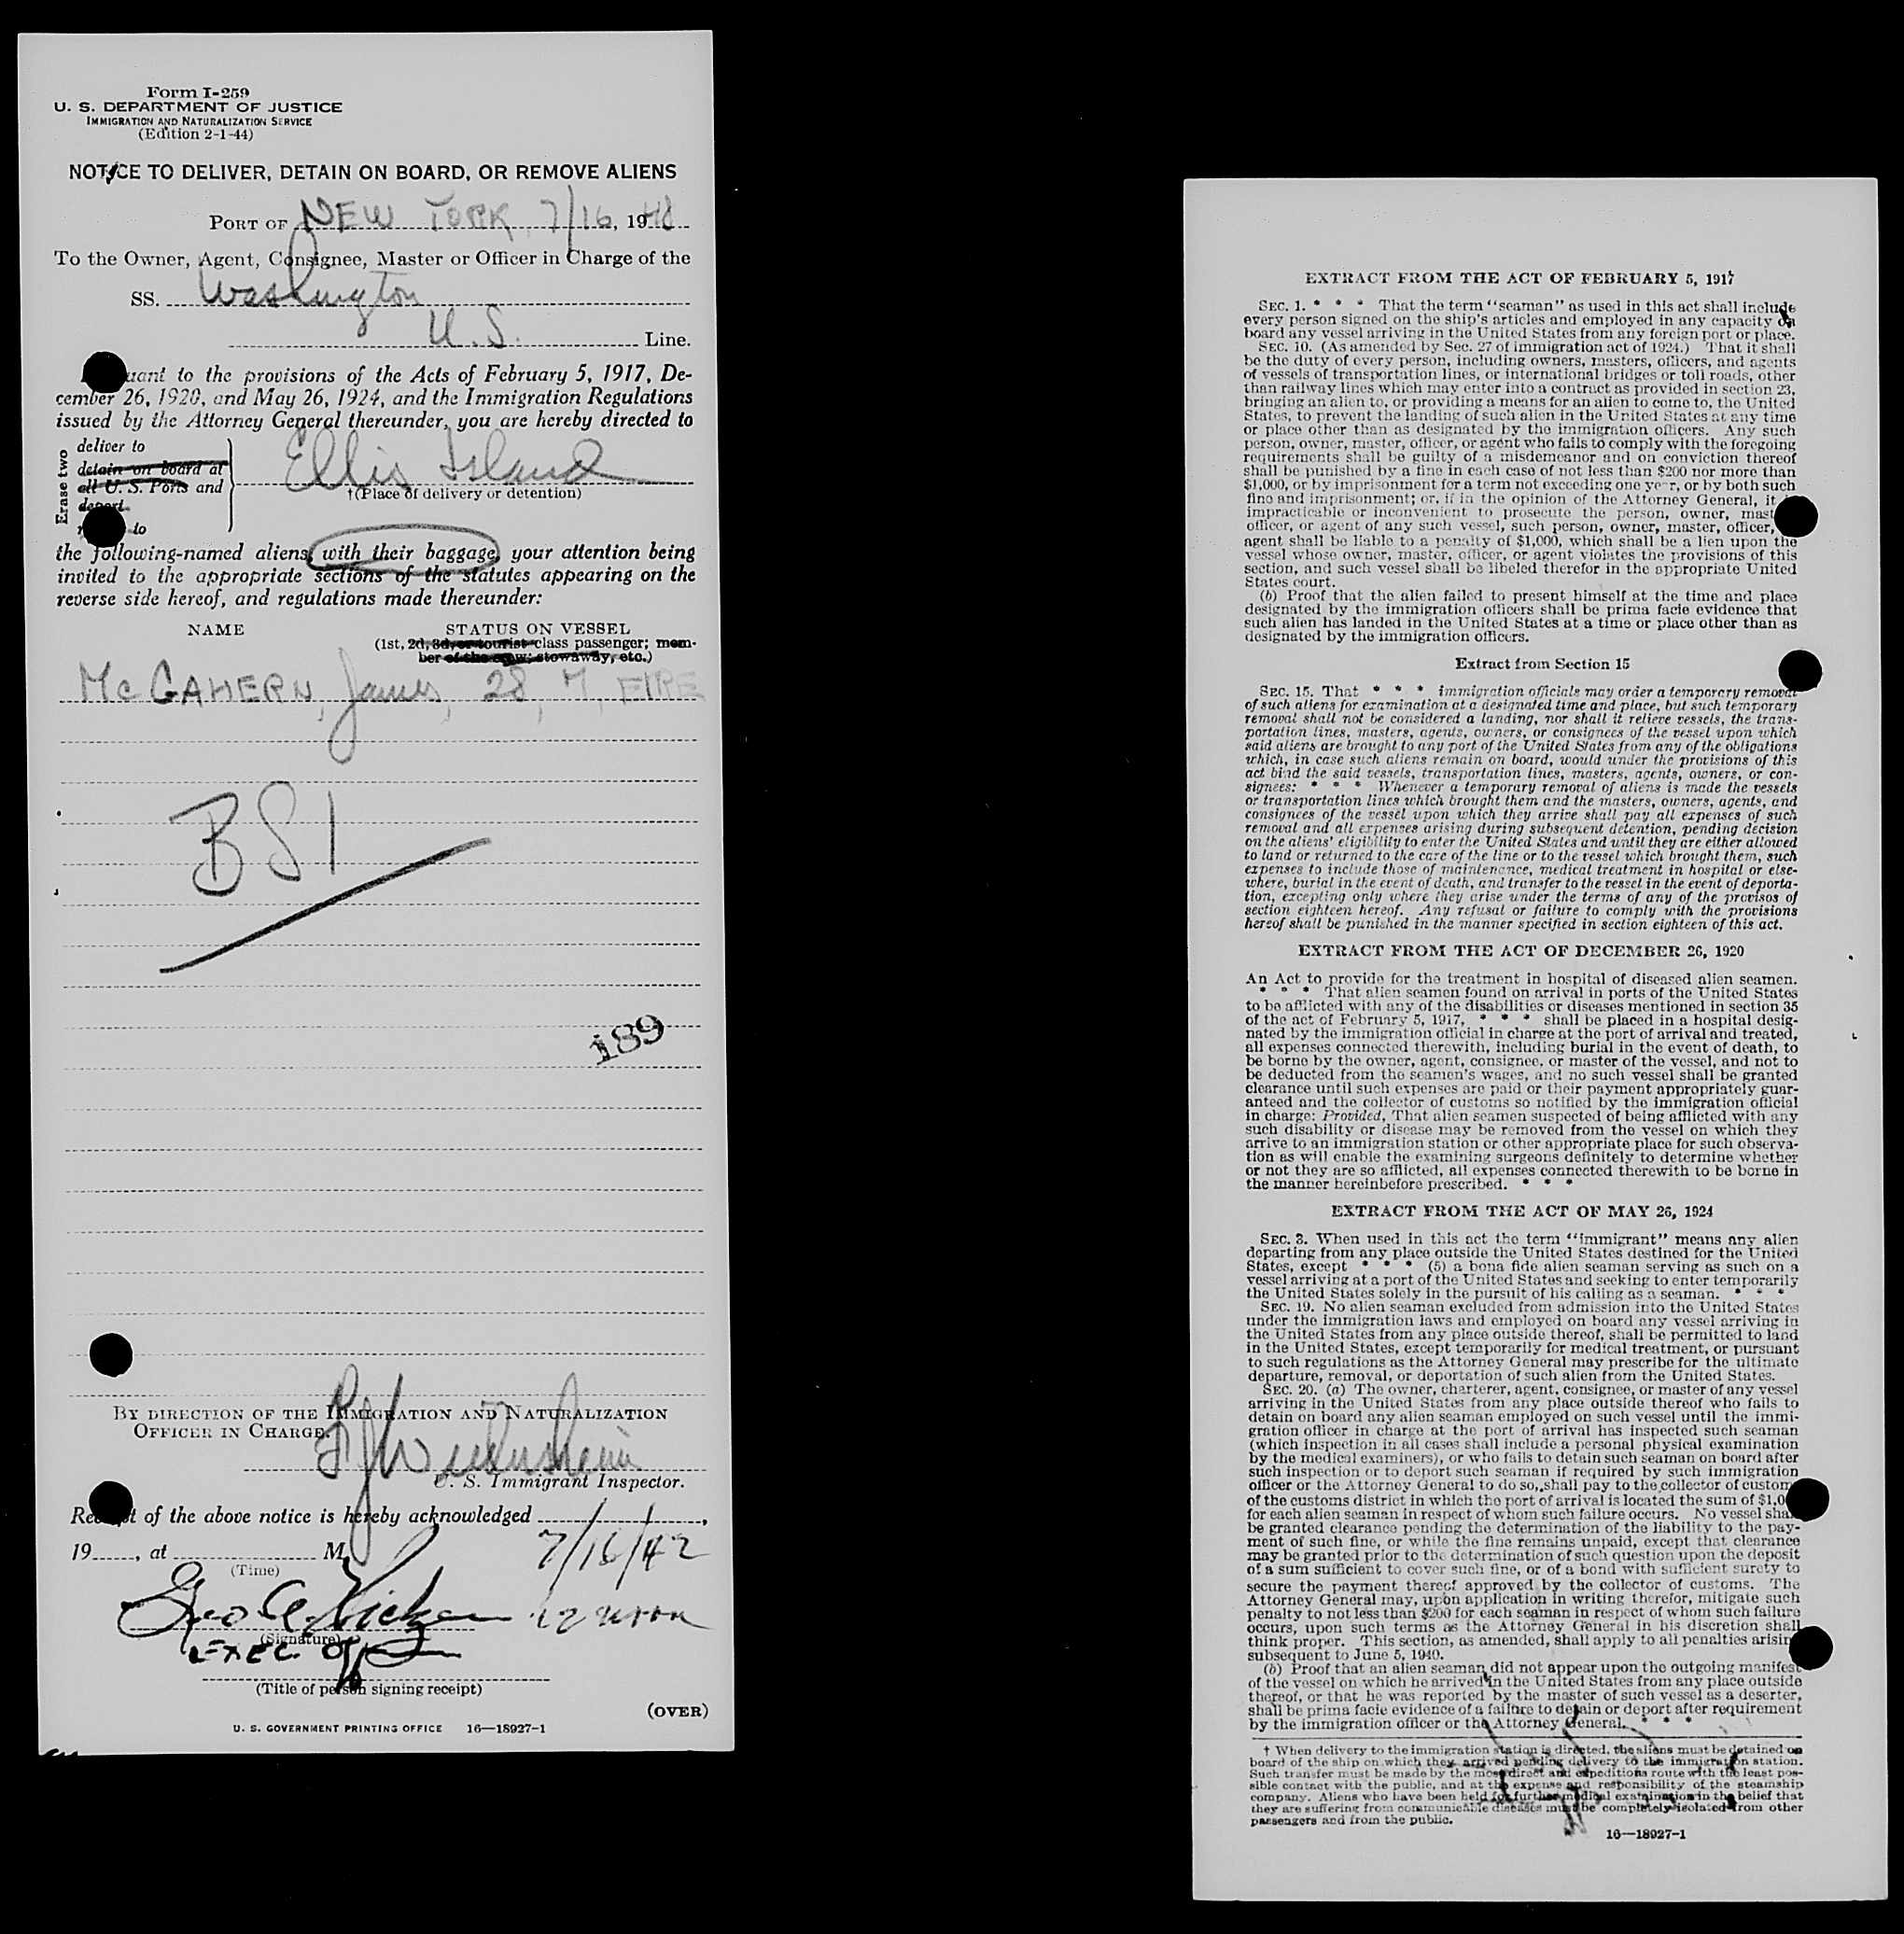 Form I-259
U. S. DEPARTMENT OF JUSTICE
IMMIGRATION AND NATURALIZATION SERVICE
(Edition 2-1-44)
NOTICE TO DELIVER, DETAIN ON BOARD, OR REMOVE ALIENS
PORT OF NEW YORK, 7/16, 1948
To the Owner, Agent, Consignee, Master or Officer in Charge of the
SS. Washington
U.S. Line.
uant to the provisions of the Acts of February 5, 1917, De-
cember 26, 1920, and May 26, 1924, and the Immigration Regulations
issued by the Attorney General thereunder, you are hereby directed to
Erase two
deliver to
detain on board at
all U. S. Ports and
deport
to
Ellis Island
†(Place of delivery or detention)
the following-named aliens, with their baggage, your attention being
invited to the appropriate sections of the statutes appearing on the
reverse side hereof, and regulations made thereunder:
NAME STATUS ON VESSEL
(1st, 2d, 3d, or tourist class passenger; mem-
ber of the crew; stowaway, etc.)
McGAHERN, James, 28, M, EIRE
BSI
189
BY DIRECTION OF THE IMMIGRATION AND NATURALIZATION
OFFICER IN CHARGE.
U. S. Immigrant Inspector.
Receipt of the above notice is hereby acknowledged
19, at M. 7/16/42
(Time)
Geo A. 12 noon
(Signature)
EXEC. Off
(Title of person signing receipt)
(OVER)
U. S. GOVERNMENT PRINTING OFFICE 16—18927-1
EXTRACT FROM THE ACT OF FEBRUARY 5, 1917
SEC. 1. * * * That the term “seaman” as used in this act shall include
every person signed on the ship's articles and employed in any capacity on
board any vessel arriving in the United States from any foreign port or place.
SEC. 10. (As amended by Sec. 27 of immigration act of 1924.) That it shall
be the duty of every person, including owners, masters, officers, and agents
of vessels of transportation lines, or international bridges or toll roads, other
than railway lines which may enter into a contract as provided in section 23,
bringing an alien to, or providing a means for an alien to come to, the United
States, to prevent the landing of such alien in the United States at any time
or place other than as designated by the immigration officers. Any such
person, owner, master, officer, or agent who fails to comply with the foregoing
requirements shall be guilty of a misdemeanor and on conviction thereof
shall be punished by a fine in each case of not less than $200 nor more than
$1,000, or by imprisonment for a term not exceeding one year, or by both such
fine and imprisonment; or, if in the opinion of the Attorney General, it
impracticable or inconvenient to prosecute the person, owner, mast
officer, or agent of any such vessel, such person, owner, master, officer,
agent shall be liable to a penalty of $1,000, which shall be a lien upon the
vessel whose owner, master, officer, or agent violates the provisions of this
section, and such vessel shall be libeled therefor in the appropriate United
States court.
(b) Proof that the alien failed to present himself at the time and place
designated by the immigration officers shall be prima facie evidence that
such alien has landed in the United States at a time or place other than as
designated by the immigration officers.
Extract from Section 15
SEC. 15. That * * * immigration officials may order a temporary removal
of such aliens for examination at a designated time and place, but such temporary
removal shall not be considered a landing, nor shall it relieve vessels, the trans-
portation lines, masters, agents, owners, or consignees of the vessel upon which
said aliens are brought to any port of the United States from any of the obligations
which, in case such aliens remain on board, would under the provisions of this
act bind the said vessels, transportation lines, masters, agents, owners, or con-
signees: * * * Whenever a temporary removal of aliens is made the vessels
or transportation lines which brought them and the masters, owners, agents, and
consignees of the vessel upon which they arrive shall pay all expenses of such
removal and all expenses arising during subsequent detention, pending decision
on the aliens' eligibility to enter the United States and until they are either allowed
to land or returned to the care of the line or to the vessel which brought them, such
expenses to include those of maintenance, medical treatment in hospital or else-
where, burial in the event of death, and transfer to the vessel in the event of deporta-
tion, excepting only where they arise under the terms of any of the provisos of
section eighteen hereof. Any refusal or failure to comply with the provisions
hereof shall be punished in the manner specified in section eighteen of this act.
EXTRACT FROM THE ACT OF DECEMBER 26, 1920
An Act to provide for the treatment in hospital of diseased alien seamen.
* * * That alien seamen found on arrival in ports of the United States
to be afflicted with any of the disabilities or diseases mentioned in section 35
of the act of February 5, 1917, * * * shall be placed in a hospital desig-
nated by the immigration official in charge at the port of arrival and treated,
all expenses connected therewith, including burial in the event of death, to
be borne by the owner, agent, consignee, or master of the vessel, and not to
be deducted from the seamen's wages, and no such vessel shall be granted
clearance until such expenses are paid or their payment appropriately guar-
anteed and the collector of customs so notified by the immigration official
in charge: Provided, That alien seamen suspected of being afflicted with any
such disability or disease may be removed from the vessel on which they
arrive to an immigration station or other appropriate place for such observa-
tion as will enable the examining surgeons definitely to determine whether
or not they are so afflicted, all expenses connected therewith to be borne in
the manner hereinbefore prescribed. * * *
EXTRACT FROM THE ACT OF MAY 26, 1924
SEC. 3. When used in this act the term “immigrant” means any alien
departing from any place outside the United States destined for the United
States, except * * * (5) a bona fide alien seaman serving as such on a
vessel arriving at a port of the United States and seeking to enter temporarily
the United States solely in the pursuit of his calling as a seaman. * * *
SEC. 19. No alien seaman excluded from admission into the United States
under the immigration laws and employed on board any vessel arriving in
the United States from any place outside thereof, shall be permitted to land
in the United States, except temporarily for medical treatment, or pursuant
to such regulations as the Attorney General may prescribe for the ultimate
departure, removal, or deportation of such alien from the United States.
SEC. 20. (a) The owner, charterer, agent, consignee, or master of any vessel
arriving in the United States from any place outside thereof who fails to
detain on board any alien seaman employed on such vessel until the immi-
gration officer in charge at the port of arrival has inspected such seaman
(which inspection in all cases shall include a personal physical examination
by the medical examiners), or who fails to detain such seaman on board after
such inspection or to deport such seaman if required by such immigration
officer or the Attorney General to do so, shall pay to the collector of custom
of the customs district in which the port of arrival is located the sum of $1,0
for each alien seaman in respect of whom such failure occurs. No vessel shall
be granted clearance pending the determination of the liability to the pay-
ment of such fine, or while the fine remains unpaid, except that clearance
may be granted prior to the determination of such question upon the deposit
of a sum sufficient to cover such fine, or of a bond with sufficient surety to
secure the payment thereof approved by the collector of customs. The
Attorney General may, upon application in writing therefor, mitigate such
penalty to not less than $200 for each seaman in respect of whom such failure
occurs, upon such terms as the Attorney General in his discretion shall
think proper. This section, as amended, shall apply to all penalties arising
subsequent to June 5, 1940.
(b) Proof that an alien seaman did not appear upon the outgoing manifest
of the vessel on which he arrived in the United States from any place outside
thereof, or that he was reported by the master of such vessel as a deserter,
shall be prima facie evidence of a failure to detain or deport after requirement
by the immigration officer or the Attorney General. * * *
† When delivery to the immigration station is directed, the aliens must be detained on
board of the ship on which they arrived pending delivery to the immigration station.
Such transfer must be made by the most direct and expeditious route with the least pos-
sible contact with the public, and at the expense and responsibility of the steamship
company. Aliens who have been held for further medical examination in the belief that
they are suffering from communicable diseases must be completely isolated from other
passengers and from the public.
16—18927-1